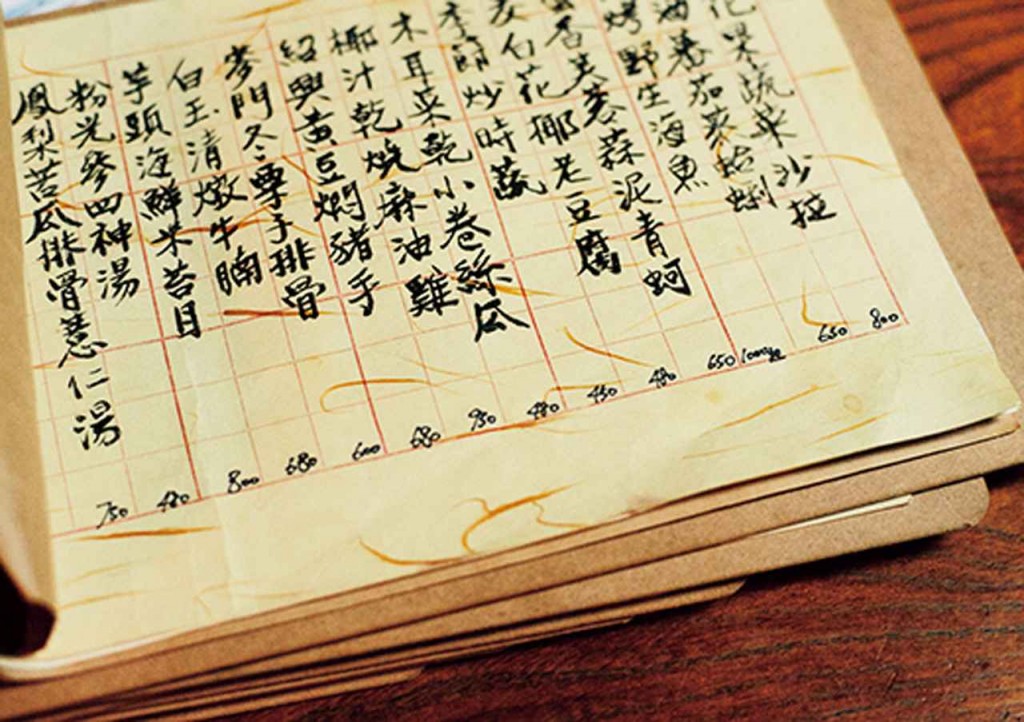 果蔬菜沙拉 800
油蕃茄蒸蛤蜊 650
烤野生海魚 1000
香芙蓉蒜泥青蚵 650
白花椰老豆腐 480
季節炒時蔬 450
木耳菜乾小卷絲瓜 480
椰汁乾燒麻油雞 950
紹興黃豆燜豬手 680
麥門冬栗子排骨 600
白玉清燉牛腩 680
芋頭海鮮米苔目 800
粉光參四神湯 480
鳳梨苦瓜排骨薏仁湯 750